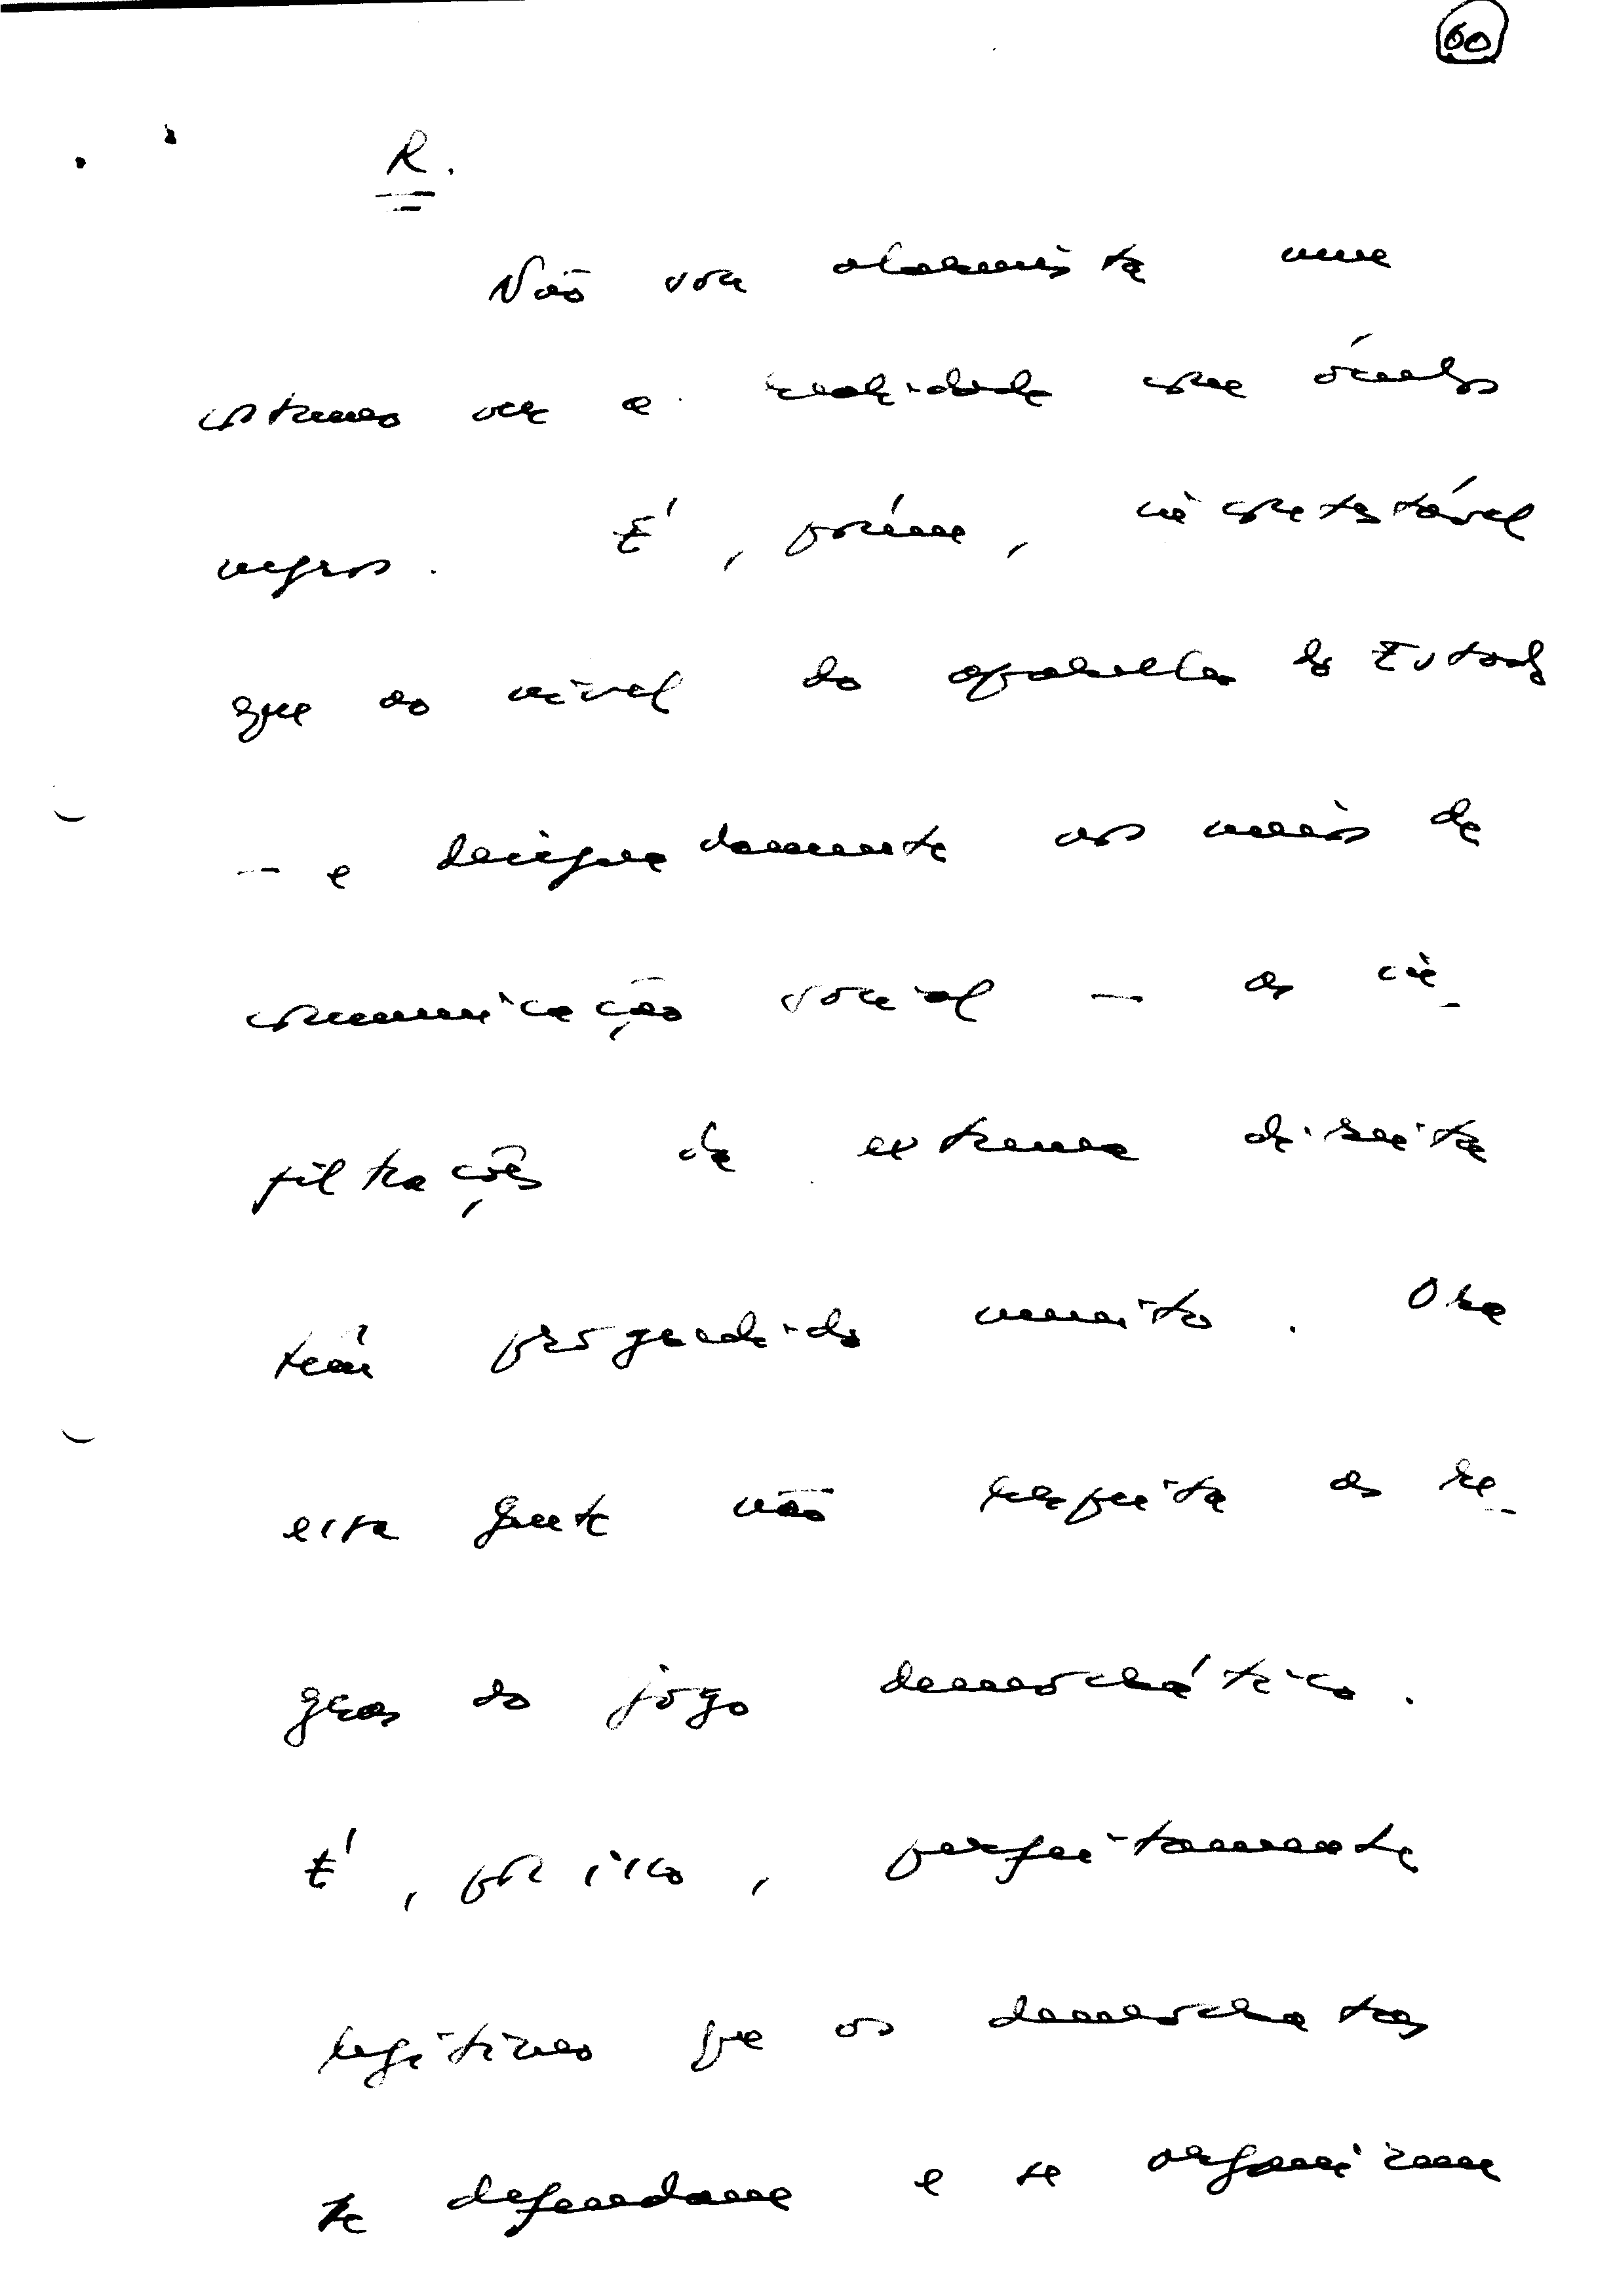 60
R.
Não sou alarmista nem
costumo ver a realidade com óculos
negros. É, porém, incontestável
que ao nível do aparelho do Estado
— e designadamente nos meios de
comunicação social — as in-
filtrações da extrema direita
têm progredido muito. Ora
essa gente não respeita as re-
gras do jogo democrático.
É, por isso, perfeitamente
legítimo que os democratas
se defendam e se organizem